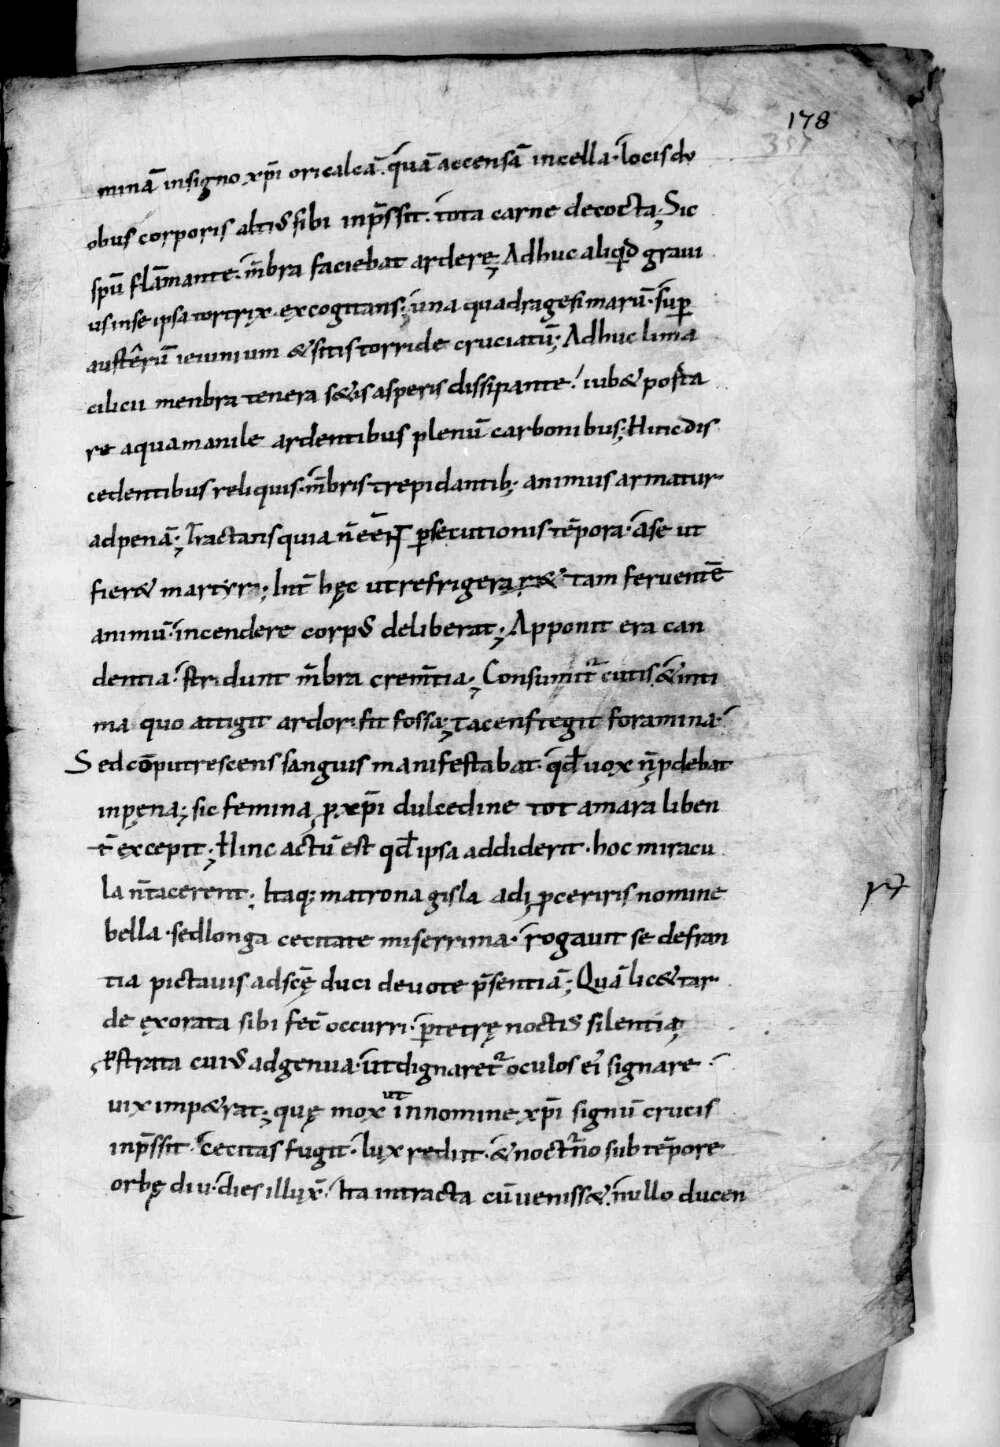 178
357
minā in signo xp̄i oricalcā. quā accensā in cella. locis du
obus corporis altiꝰ sibi inp̄ssit. tota carne decocta; Sic
spū flāmante. m̄bra faciebat ardere; Adhuc aliqđ graui
us in se ipsa tortrix excogitans; una quadragesimarū. sup̄
austērū ieiunium & sitis torride cruciatū; Adhuc lima
cilicii menbra tenera s&is asperis dissipante. iub& porta
re aquamanile ardentibus plenū carbonibus; Hinc dis
cedentibus reliquis. m̄bris trepidantib; animus armatur
ad penā; Tractans quia n̄ eēnt p̄secutionis tēpora. a se ut
fier& martyra; Int̄ hęc ut refrigerar& tam feruentē
animū. incendere corpꝰ deliberat; Apponit era can
dentia. stridunt m̄bra crem̄tia; Consumit᷑ cutis. & inti
ma quo attigit ardor. fit fossa; tacens tegit foramina.
Sed cōputrescens sanguis manifestabat. qđ uox n̄ ꝓdebat
in pęna; sic femina ꝓ xp̄i dulcedine tot amara liben
t̄ excepit; Hinc actū est qđ ipsa addiderit. hoc miracu
la n̄ tacerent; Itaq; matrona gisla adi ꝓceriris nomine
bella. sed longa cecitate miserrima. rogauit se de fran
tia pictauis ad scę duci deuote p̄sentiā; Quā lic& tar
de exorata sibi fec̄ occurri. p̄ tetrę noctiꝰ silentia;
Ꝓstrata cuiꝰ ad genua. ut dignaret᷑ oculos ei signare
uix imp&rat; quę mox ut in nomine xp̄i signū crucis
inp̄ssit. cecitas fugit. lux rediit. & noct̄no sub tēpore
orbę diu. dies illux̄. Ita intracta cū uenisset. nullo ducen